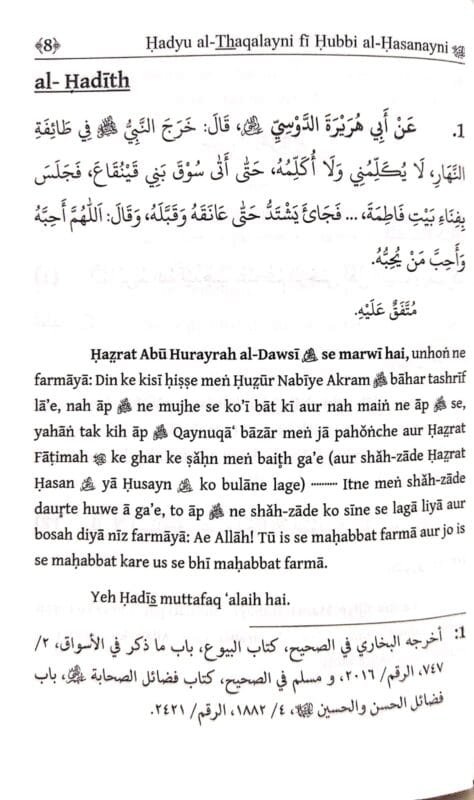 ﴾8﴿ Ḥadyu al-Thaqalayni fī Ḥubbi al-Ḥasanayni
al- Ḥadīth
1. عَنْ أَبِي هُرَيْرَةَ الدَّوْسِيِّ ﷺ، قَالَ: خَرَجَ النَّبِيُّ ﷺ فِي طَائِفَةِ
النَّهَارِ، لَا يُكَلِّمُنِي وَلَا أُكَلِّمُهُ، حَتَّى أَتَى سُوْقَ بَنِي قَيْنُقَاعَ، فَجَلَسَ
بِفِنَاءِ بَيْتِ فَاطِمَةَ، ... فَجَائَ يَشْتَدُّ حَتَّى عَانَقَهُ وَقَبَّلَهُ، وَقَالَ: اَللّٰهُمَّ أَحِبَّهُ
وَأَحِبَّ مَنْ يُحِبُّهُ.
مُتَّفَقٌ عَلَيْهِ.
Ḥaz̤rat Abū Hurayrah al-Dawsī se marwī hai, unhoṅ ne
farmāyā: Din ke kisī ḥiṣṣe meṅ Ḥuz̤ūr Nabīye Akram ﷺ bāhar tashrīf
lā’e, nah āp ﷺ ne mujhe se ko’ī bāt kī aur nah maiṅ ne āp ﷺ se,
yahāṅ tak kih āp ﷺ Qaynuqā‘ bāzār meṅ jā pahoṅche aur Ḥaz̤rat
Fāṭimah ke ghar ke ṣăḥn meṅ baiṭh ga’e (aur shăh-zāde Ḥaz̤rat
Ḥasan yā Ḥusayn ko bulāne lage) ········· Itne meṅ shăh-zāde
dauṛte huwe ā ga’e, to āp ﷺ ne shăh-zāde ko sīne se lagā liyā aur
bosah diyā nīz farmāyā: Ae Allāh! Tū is se maḥabbat farmā aur jo is
se maḥabbat kare us se bhī maḥabbat farmā.
Yeh Ḥadīs̱ muttafaq ‘alaih hai.
1: أخرجه البخاري في الصحيح، كتاب البيوع، باب ما ذكر في الأسواق، ٢/
٧٤٧، الرقم/ ٢٠١٦، و مسلم في الصحيح، كتاب فضائل الصحابة، باب
فضائل الحسن والحسين، ٤/ ١٨٨٢، الرقم/ ٢٤٢١.